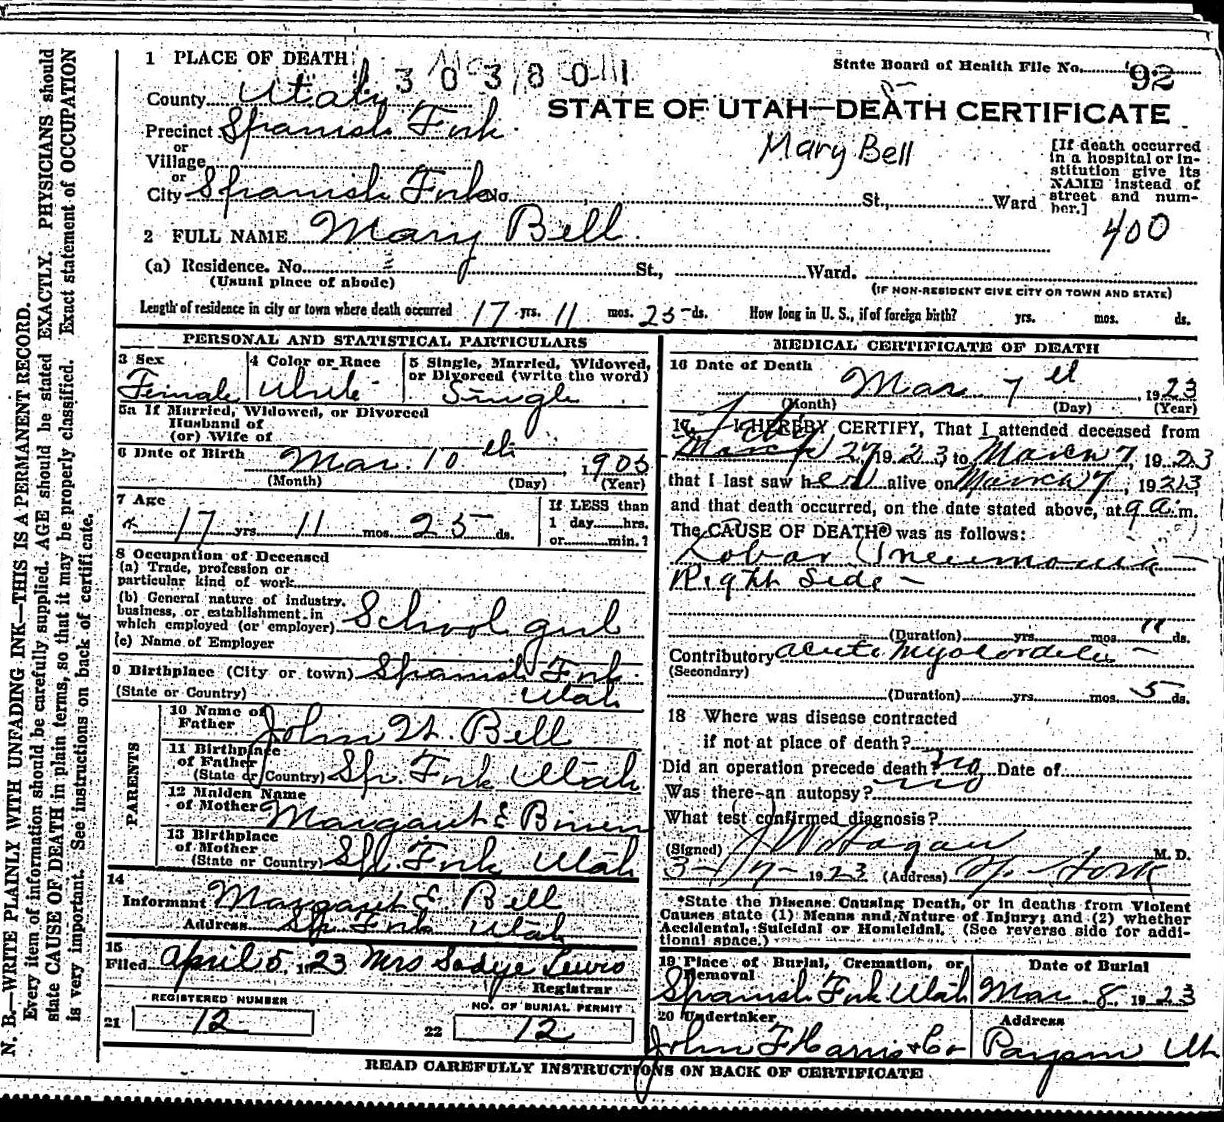 1 PLACE OF DEATH
303801
State Board of Health File No. 92
County Utah
STATE OF UTAH—DEATH CERTIFICATE
Precinct Spanish Fork
Mary Bell
or
Village
or
City Spanish Fork No. St., Ward
[If death occurred
in a hospital or in-
stitution give its
NAME instead of
street and num-
ber.]
400
2 FULL NAME Mary Bell
(a) Residence. No. St., Ward.
(Usual place of abode)
(IF NON-RESIDENT GIVE CITY OR TOWN AND STATE)
Length of residence in city or town where death occurred 17 yrs. 11 mos. 25 ds. How long in U. S., if of foreign birth? yrs. mos. ds.
PERSONAL AND STATISTICAL PARTICULARS
3 Sex
Female
4 Color or Race
White
5 Single, Married, Widowed,
or Divorced (write the word)
Single
5a If Married, Widowed, or Divorced
Husband of
(or) Wife of
6 Date of Birth Mar. 10th 1905
(Month) (Day) (Year)
7 Age
17 yrs. 11 mos. 25 ds.
If LESS than
1 day hrs.
or min.?
8 Occupation of Deceased
(a) Trade, profession or
particular kind of work
(b) General nature of industry,
business, or establishment in
which employed (or employer) School girl
(c) Name of Employer
9 Birthplace (City or town) Spanish Fork
(State or Country) Utah
PARENTS
10 Name of
Father John H. Bell
11 Birthplace
of Father
(State or Country) Sp. Fork Utah
12 Maiden Name
of Mother Margaret E
13 Birthplace
of Mother
(State or Country) Sp. Fork Utah
14
Informant Margaret E Bell
Address Sp. Fork Utah
15
Filed April 5, 1923 Mrs Sadye Lewis
Registrar
REGISTERED NUMBER
21 12
NO. OF BURIAL PERMIT
22 12
MEDICAL CERTIFICATE OF DEATH
16 Date of Death
Mar 7th 1923
(Month) (Day) (Year)
17. I HEREBY CERTIFY, That I attended deceased from
Feb March 27 1923 to March 7, 1923
that I last saw her alive on March 7, 1923
and that death occurred, on the date stated above, at 9 a.m.
The CAUSE OF DEATH* was as follows:
Lobar Pneumonia—
Right Side—
(Duration) yrs. mos. 11 ds.
Contributory acute Myocarditis—
(Secondary)
(Duration) yrs. mos. 5 ds.
18 Where was disease contracted
if not at place of death?
Did an operation precede death? no Date of
Was there an autopsy? no
What test confirmed diagnosis?
(Signed) J W Hagan M. D.
3-7-1923 (Address) Sp. Fork
*State the Disease Causing Death, or in deaths from Violent
Causes state (1) Means and Nature of Injury; and (2) whether
Accidental, Suicidal or Homicidal. (See reverse side for addi-
tional space.)
19 Place of Burial, Cremation, or
Removal
Spanish Fork Utah
Date of Burial
Mar 8, 1923
20 Undertaker
John F Harris & Co
Address
Payson Ut
READ CAREFULLY INSTRUCTIONS ON BACK OF CERTIFICATE
N. B.—WRITE PLAINLY WITH UNFADING INK—THIS IS A PERMANENT RECORD.
Every item of information should be carefully supplied. AGE should be stated EXACTLY. PHYSICIANS should
state CAUSE OF DEATH in plain terms, so that it may be properly classified. Exact statement of OCCUPATION
is very important. See instructions on back of certificate.